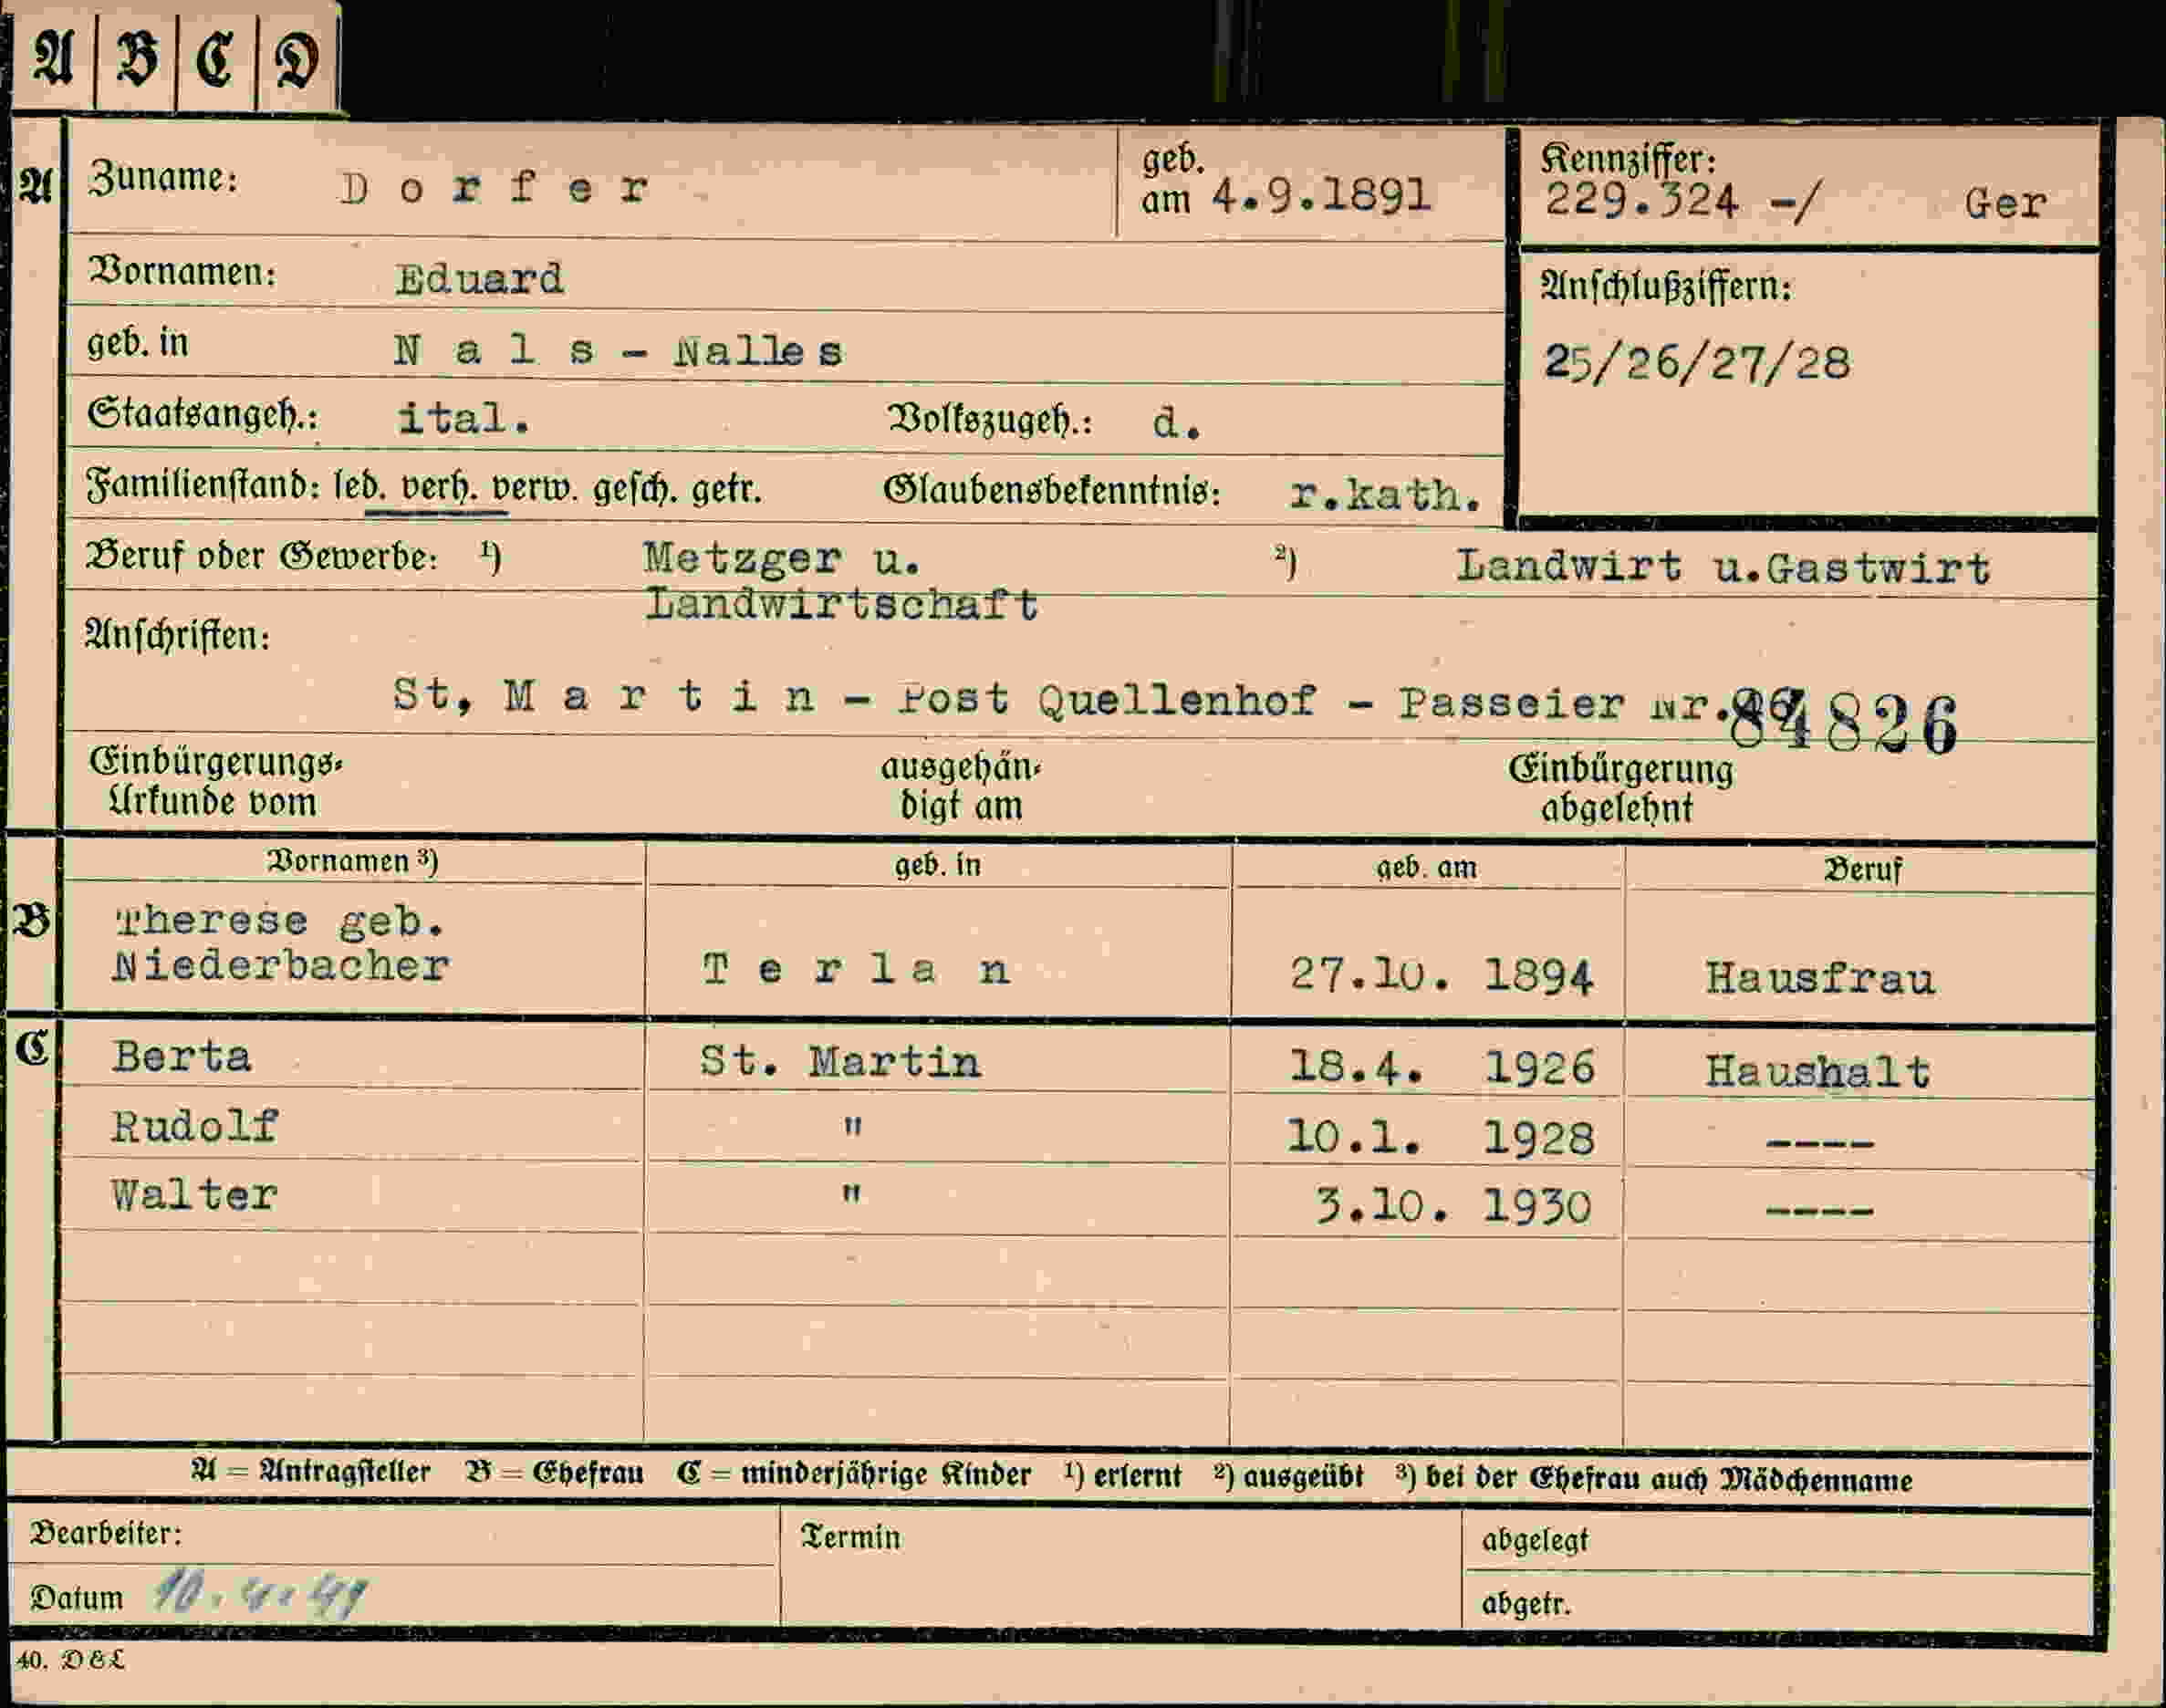 A B C D
A Zuname: Dorfer geb. am 4.9.1891 Kennziffer: 229.324 -/ Ger
Vornamen: Eduard
Anschlußziffern:
geb. in Nals - Nalles 25/26/27/28
Staatsangeh.: ital. Volkszugeh.: d.
Familienstand: led. verh. verw. gesch. getr. Glaubensbekenntnis: r.kath.
Beruf oder Gewerbe: 1) Metzger u. 2) Landwirt u.Gastwirt
Landwirtschaft
Anschriften:
St, Martin - Post Quellenhof - Passeier Nr. 84826
Einbürgerungs- ausgehän- Einbürgerung
Urkunde vom digt am abgelehnt
Vornamen 3) geb. in geb. am Beruf
B Therese geb.
Niederbacher Terlan 27.10. 1894 Hausfrau
C Berta St. Martin 18.4. 1926 Haushalt
Rudolf " 10.1. 1928 ----
Walter " 3.10. 1930 ----
A = Antragsteller B = Ehefrau C = minderjährige Kinder 1) erlernt 2) ausgeübt 3) bei der Ehefrau auch Mädchenname
Bearbeiter: Termin abgelegt
Datum abgetr.
40. D&L